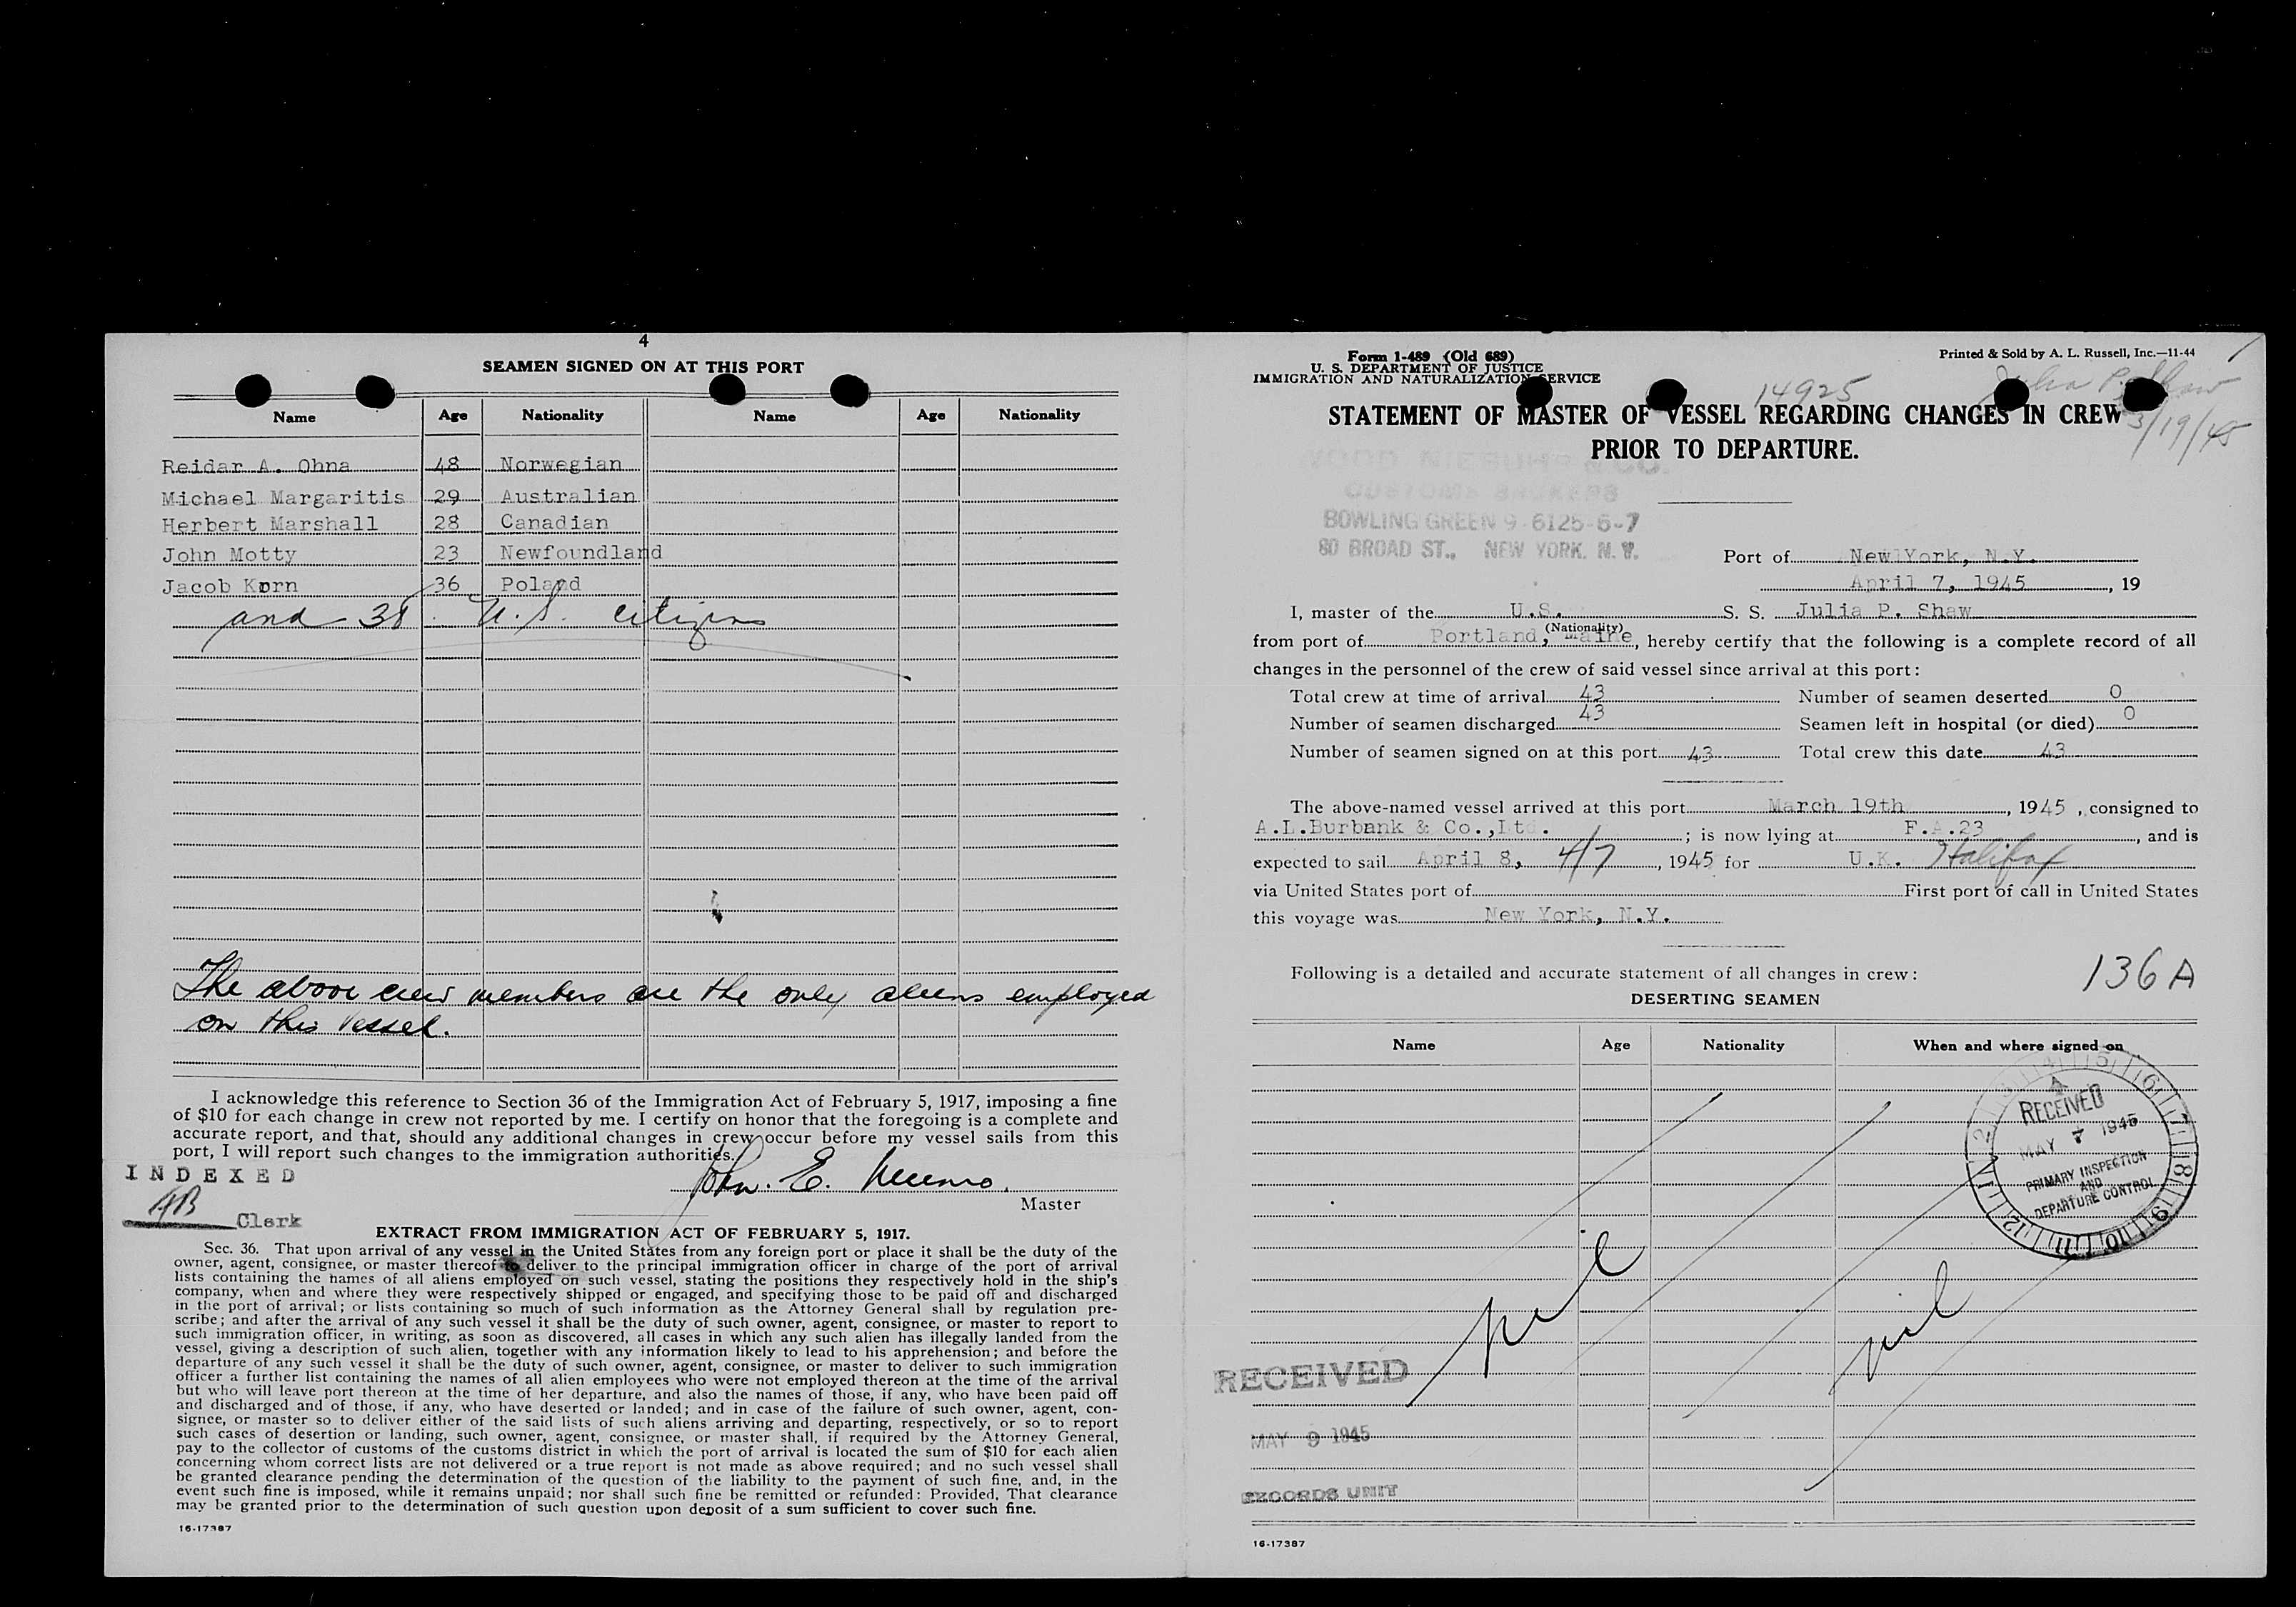 4
SEAMEN SIGNED ON AT THIS PORT
Name Age Nationality Name Age Nationality
Reidar A. Ohna 48 Norwegian
Michael Margaritis 29 Australian
Herbert Marshall 28 Canadian
John Motty 23 Newfoundland
Jacob Korn 36 Poland
and 38 U.S. citizens
The above crew members are the only aliens employed
on this vessel.
I acknowledge this reference to Section 36 of the Immigration Act of February 5, 1917, imposing a fine
of $10 for each change in crew not reported by me. I certify on honor that the foregoing is a complete and
accurate report, and that, should any additional changes in crew occur before my vessel sails from this
port, I will report such changes to the immigration authorities.
INDEXED
John. E.
Master
Clerk
EXTRACT FROM IMMIGRATION ACT OF FEBRUARY 5, 1917.
Sec. 36. That upon arrival of any vessel in the United States from any foreign port or place it shall be the duty of the
owner, agent, consignee, or master thereof to deliver to the principal immigration officer in charge of the port of arrival
lists containing the names of all aliens employed on such vessel, stating the positions they respectively hold in the ship's
company, when and where they were respectively shipped or engaged, and specifying those to be paid off and discharged
in the port of arrival; or lists containing so much of such information as the Attorney General shall by regulation pre-
scribe; and after the arrival of any such vessel it shall be the duty of such owner, agent, consignee, or master to report to
such immigration officer, in writing, as soon as discovered, all cases in which any such alien has illegally landed from the
vessel, giving a description of such alien, together with any information likely to lead to his apprehension; and before the
departure of any such vessel it shall be the duty of such owner, agent, consignee, or master to deliver to such immigration
officer a further list containing the names of all alien employees who were not employed thereon at the time of the arrival
but who will leave port thereon at the time of her departure, and also the names of those, if any, who have been paid off
and discharged and of those, if any, who have deserted or landed; and in case of the failure of such owner, agent, con-
signee, or master so to deliver either of the said lists of such aliens arriving and departing, respectively, or so to report
such cases of desertion or landing, such owner, agent, consignee, or master shall, if required by the Attorney General,
pay to the collector of customs of the customs district in which the port of arrival is located the sum of $10 for each alien
concerning whom correct lists are not delivered or a true report is not made as above required; and no such vessel shall
be granted clearance pending the determination of the question of the liability to the payment of such fine, and, in the
event such fine is imposed, while it remains unpaid; nor shall such fine be remitted or refunded: Provided, That clearance
may be granted prior to the determination of such question upon deposit of a sum sufficient to cover such fine.
16-17387
Form 1-489 (Old 689)
U. S. DEPARTMENT OF JUSTICE
IMMIGRATION AND NATURALIZATION SERVICE
Printed & Sold by A. L. Russell, Inc.—11-44
14925
John P. Shaw
3/19/45
STATEMENT OF MASTER OF VESSEL REGARDING CHANGES IN CREW
PRIOR TO DEPARTURE.
WOOD NIEBUHR & CO.
CUSTOMS BROKERS
BOWLING GREEN 9-6125-6-7
80 BROAD ST., NEW YORK, N. Y.
Port of New York, N.Y.
April 7, 1945, 19
I, master of the U.S. S. S. Julia P. Shaw
(Nationality)
from port of Portland, Maine, hereby certify that the following is a complete record of all
changes in the personnel of the crew of said vessel since arrival at this port:
Total crew at time of arrival 43 Number of seamen deserted 0
Number of seamen discharged 43 Seamen left in hospital (or died) 0
Number of seamen signed on at this port 43 Total crew this date 43
The above-named vessel arrived at this port March 19th, 1945, consigned to
A.L.Burbank & Co.,Ltd.; is now lying at F.A.23, and is
expected to sail April 8, 4/7, 1945 for U.K. Halifax
via United States port of First port of call in United States
this voyage was New York, N.Y.
Following is a detailed and accurate statement of all changes in crew:
136A
DESERTING SEAMEN
Name Age Nationality When and where signed on
RECEIVED
MAY 7 1945
PRIMARY INSPECTION
AND
DEPARTURE CONTROL
nil nil
RECEIVED
MAY 9 1945
RECORDS UNIT
16-17387